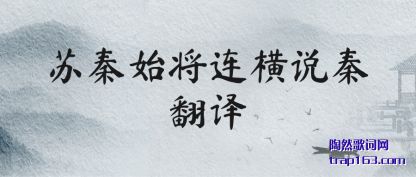 苏秦始将连横说秦
翻译
陶然歌词网
trap163.com